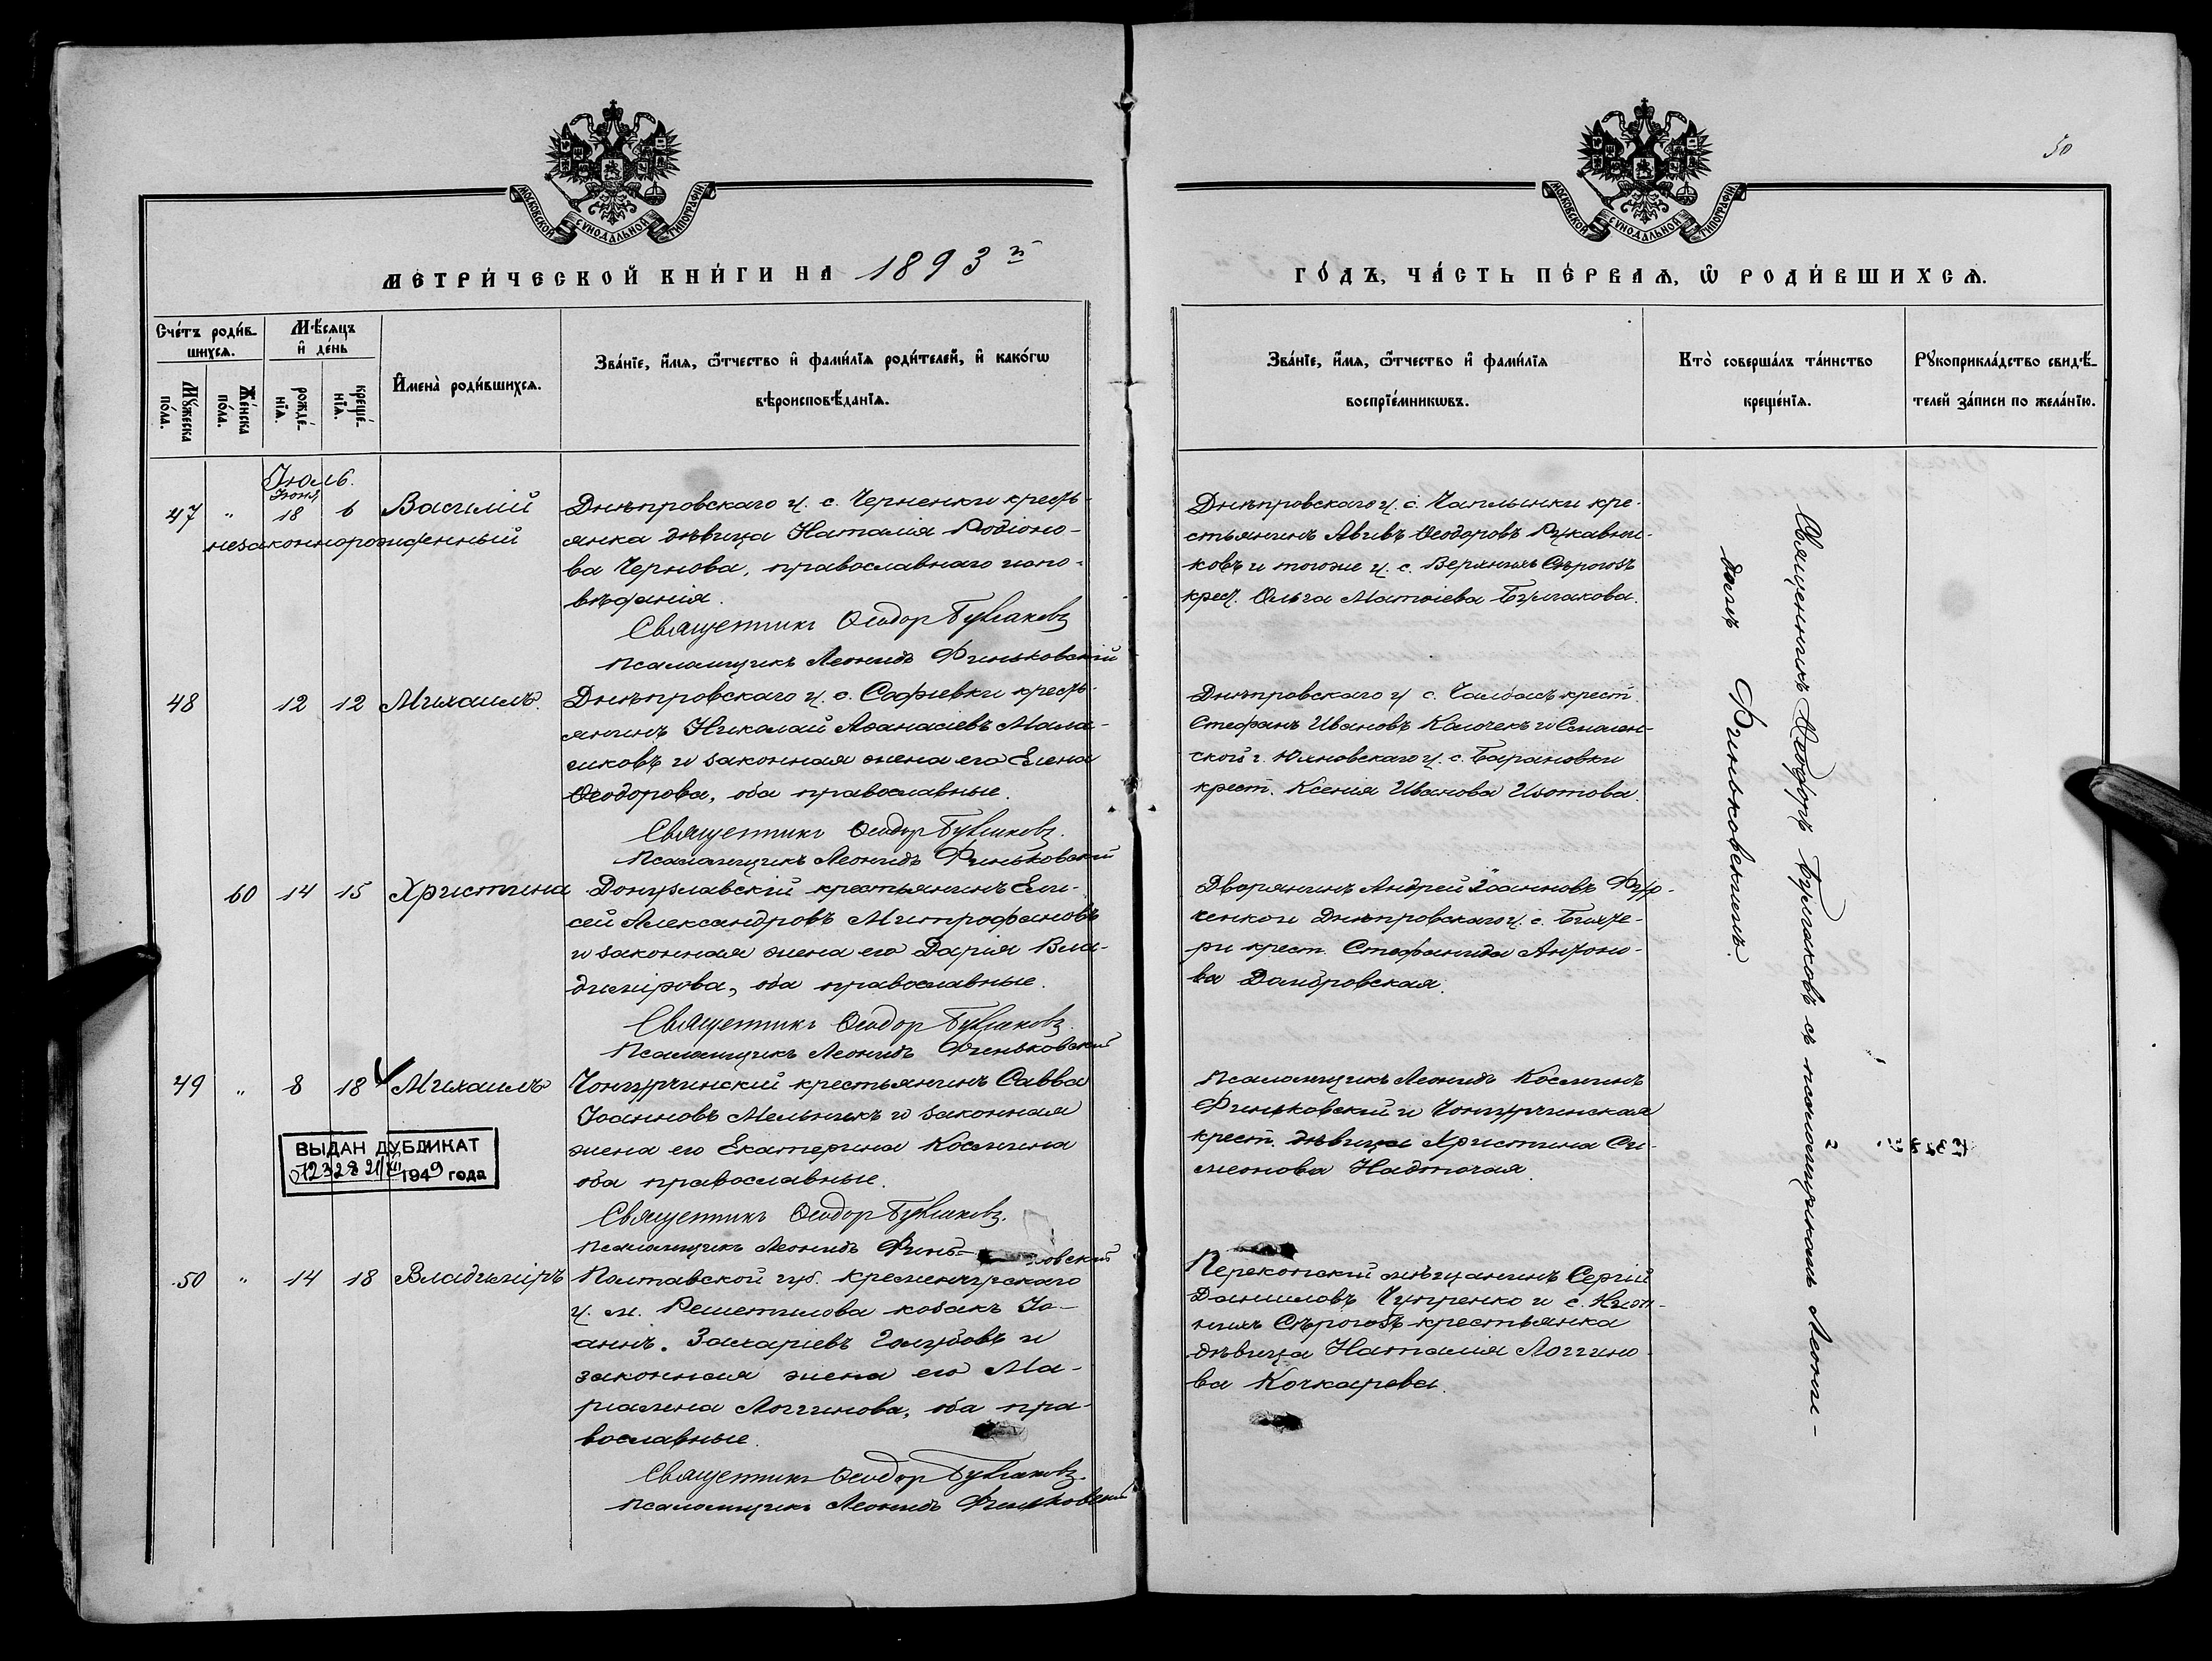 50
МОСКОВСКОЙ СѴНОДАЛЬНОЙ ТИПОГРАФІИ
МОСКОВСКОЙ СѴНОДАЛЬНОЙ ТИПОГРАФІИ
МЕТРИ́ЧЕСКОЙ КНИ́ГИ НА 1893 й
ГО́ДЪ, ЧА́СТЬ ПЕ́РВАѦ, Ѡ РОДИ́ВШИХСѦ.
Сче́тъ роди́в-
шихсѧ.
Му́жеска по́ла.
Же́нска по́ла.
Мѣ́сѧцъ
и де́нь
рожде́-
нїѧ.
креще́-
нїѧ.
Имена̀ роди́вшихсѧ.
Зва́нїе, и́мѧ, ѻ́тчество и фами́лїѧ роди́телей, и како́гѡ
вѣроисповѣ́данїѧ.
Зва́нїе, и́мѧ, ѻ́тчество и фами́лїѧ
воспрїе́мникѡвъ.
Кто̀ соверша́лъ та́инство
креще́нїѧ.
Рꙋкоприкла́дство свидѣ́-
телей за́писи по жела́нїю.
Іюль.
Іюня
47 " 18 6 Василій
незаконнорожденный
Днѣпровскаго у. с. Черненки кресть-
янка дѣвица Наталія Родіоно-
ва Чернова, православнаго испо-
вѣданія.
Священникъ Ѳеодор Булгаковъ
Псаломщикъ Леонидъ Финьковскій
Днѣпровскаго у. с. Чаплынки кре-
стьянинъ Авивъ Ѳеодоровъ Рукавни-
ковъ и тогоже у. с. Верхнихъ Сѣрогозъ
крест. Ольга Матѳіева Булгакова.
48 12 12 Михаилъ.
Днѣпровскаго у. с. Софіевки кресть-
янинъ Николай Аѳанасіевъ Мала-
иковъ и законная жена его Елена
Ѳеодорова, оба православные.
Священникъ Ѳеодор Булгаковъ.
Псаломщикъ Леонидъ Финьковскій
Днѣпровскаго у с. Чалбасъ крест.
Стефанъ Ивановъ Калочекъ и Смолен-
ской г. Юхновскаго у. с. Барановки
крест. Ксенія Иванова Изотова.
60 14 15 Христина
Донузлавскій крестьянинъ Ели-
сей Александровъ Митрофановъ
и законная жена его Дарія Вла-
димірова, оба православные.
Священникъ Ѳеодор Булгаковъ.
Псаломщикъ Леонидъ Финьковскій
Дворянинъ Андрей Іоанновъ
Днѣпровскаго у. с.
крест. Стефанида Антоно-
ва Домбровская.
49 " 8 18 Михаилъ
Чонгурчинскій крестьянинъ Савва
Іоанновъ Мельникъ и законная
жена его Екатерина Косьмина
оба православные.
Священникъ Ѳеодор Булгаковъ.
Псаломщикъ Леонидъ Финь-ковскій
ВЫДАН ДУБЛИКАТ
072328 21/XII 1949 года
Псаломщикъ Леонидъ Косминъ
Финьковскій и Чонгурчинская
крест. дѣвица Христина Си-
меонова Надточая.
50 " 14 18 Владиміръ
Полтавской губ. Кременчугскаго
у. м. Решетилова козакъ Іо-
аннъ. Захаріевъ Голубовъ и
законная жена его Ма-
ріамна Логгинова, оба пра-
вославные.
Священникъ Ѳеодор Булгаковъ.
Псаломщикъ Леонидъ Финьковскій
Перекопскій мѣщанинъ Сергій
Данииловъ Чупренко и с. Ниж-
нихъ Сѣрогозъ крестьянка
дѣвица Наталія Логгино-
ва Кочкарева.
Священникъ Ѳеодоръ Булгаковъ съ псаломщикомъ Леони-
домъ Финьковскимъ.